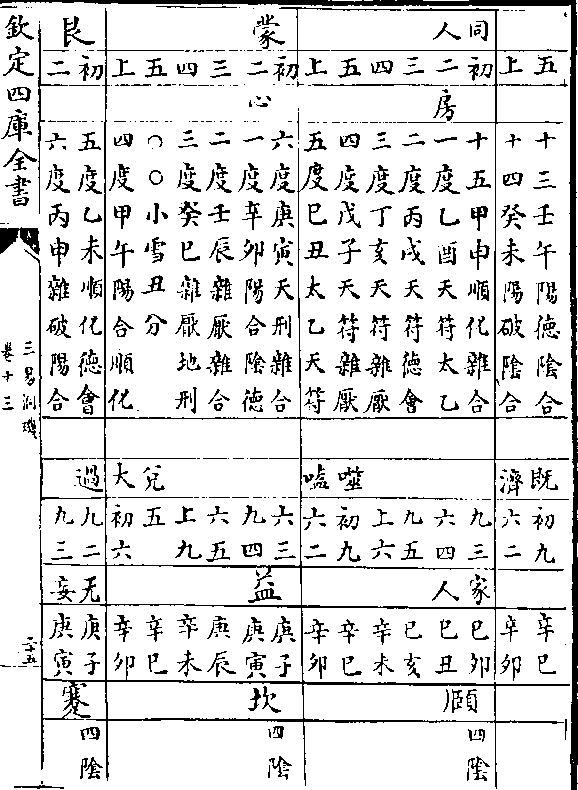 同人　蒙　艮
五　上　初　二　三　四　五　上　初　二　三　四　五　上　初　二
房　心
十三壬午陽德陰合
十四癸未陽破陰合
十五甲申順化雜合
一度乙酉天符太乙
二度丙戌天符德會
三度丁亥天符雜厭
四度戊子天符雜厭
五度巳丑太乙天符
六度庚寅天刑雜合
一度辛卯陽合陰德
二度壬辰雜厭雜合
三度癸巳雜厭地刑
○○小雪丑分
四度甲午陽合順化
五度乙未順化德會
六度丙申雜破陽合
既濟　噬嗑　兌　大過
初九　六二　九三　六四　九五　上六　初九　六二　六三　九四　六五　上九　五　初六　九二　九三
家人　益　无妄
辛巳　辛卯　巳卯　巳丑　巳亥　辛未　辛巳　辛卯　庚子　庚寅　庚辰　辛未　辛巳　辛卯　庚子　庚寅
頤　坎　蹇
四陰　四陰　四陰
欽定四庫全書
三易洞璣
卷十三
二十五